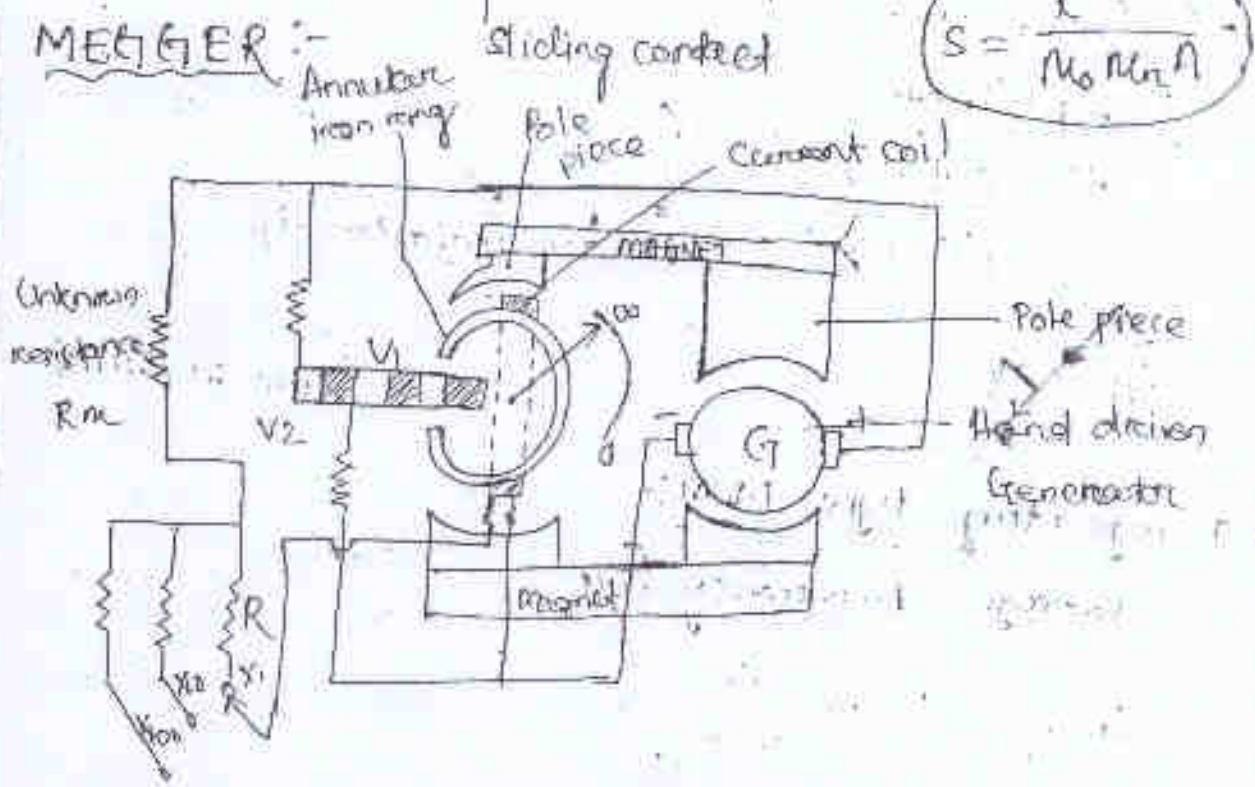 MEGGER :-
Sliding contact
S = l / μ₀ μr A
Annular
iron ring
Pole
piece
Current coil
MAGNET
Unknown
resistance
Rx
V1
V2
∞
0
Pole piece
G
Hand driven
Generator
Magnet
R
X1
X10
X100